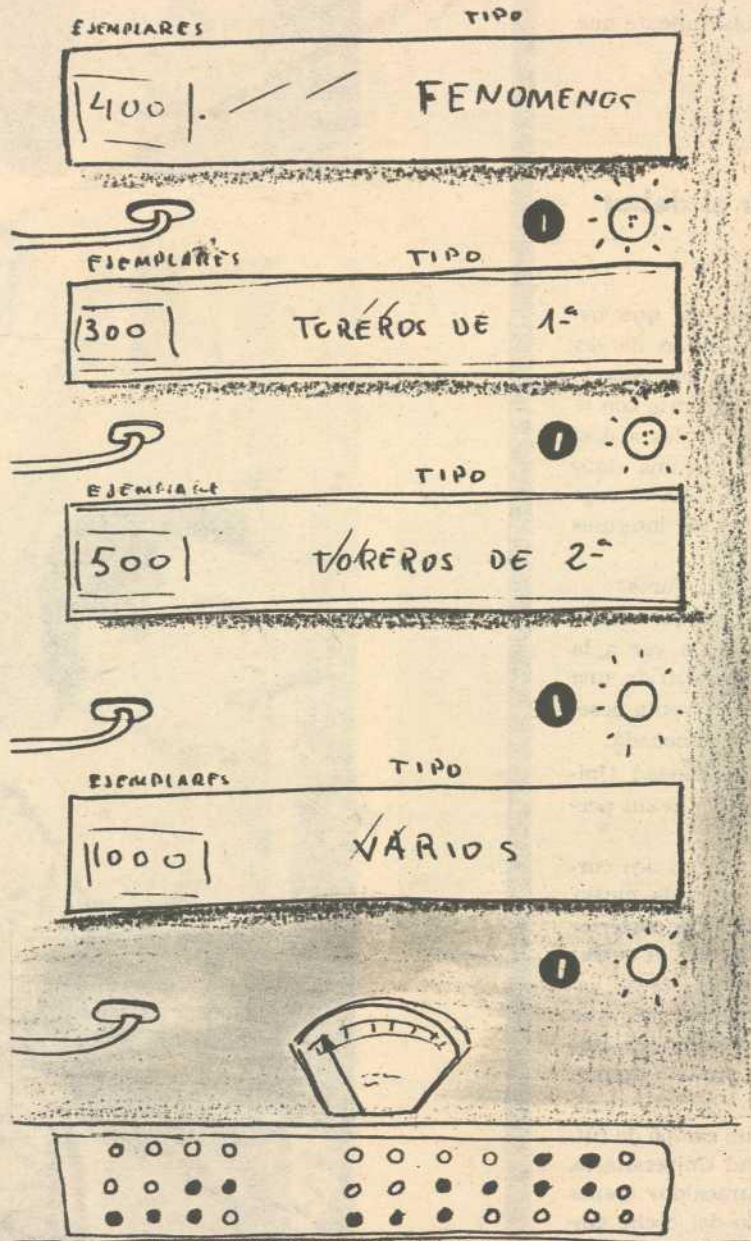 EJEMPLARES TIPO
400 FENOMENOS
EJEMPLARES TIPO
300 TOREROS DE 1ª
EJEMPLARE TIPO
500 TOREROS DE 2ª
EJEMPLARES TIPO
1000 VARIOS